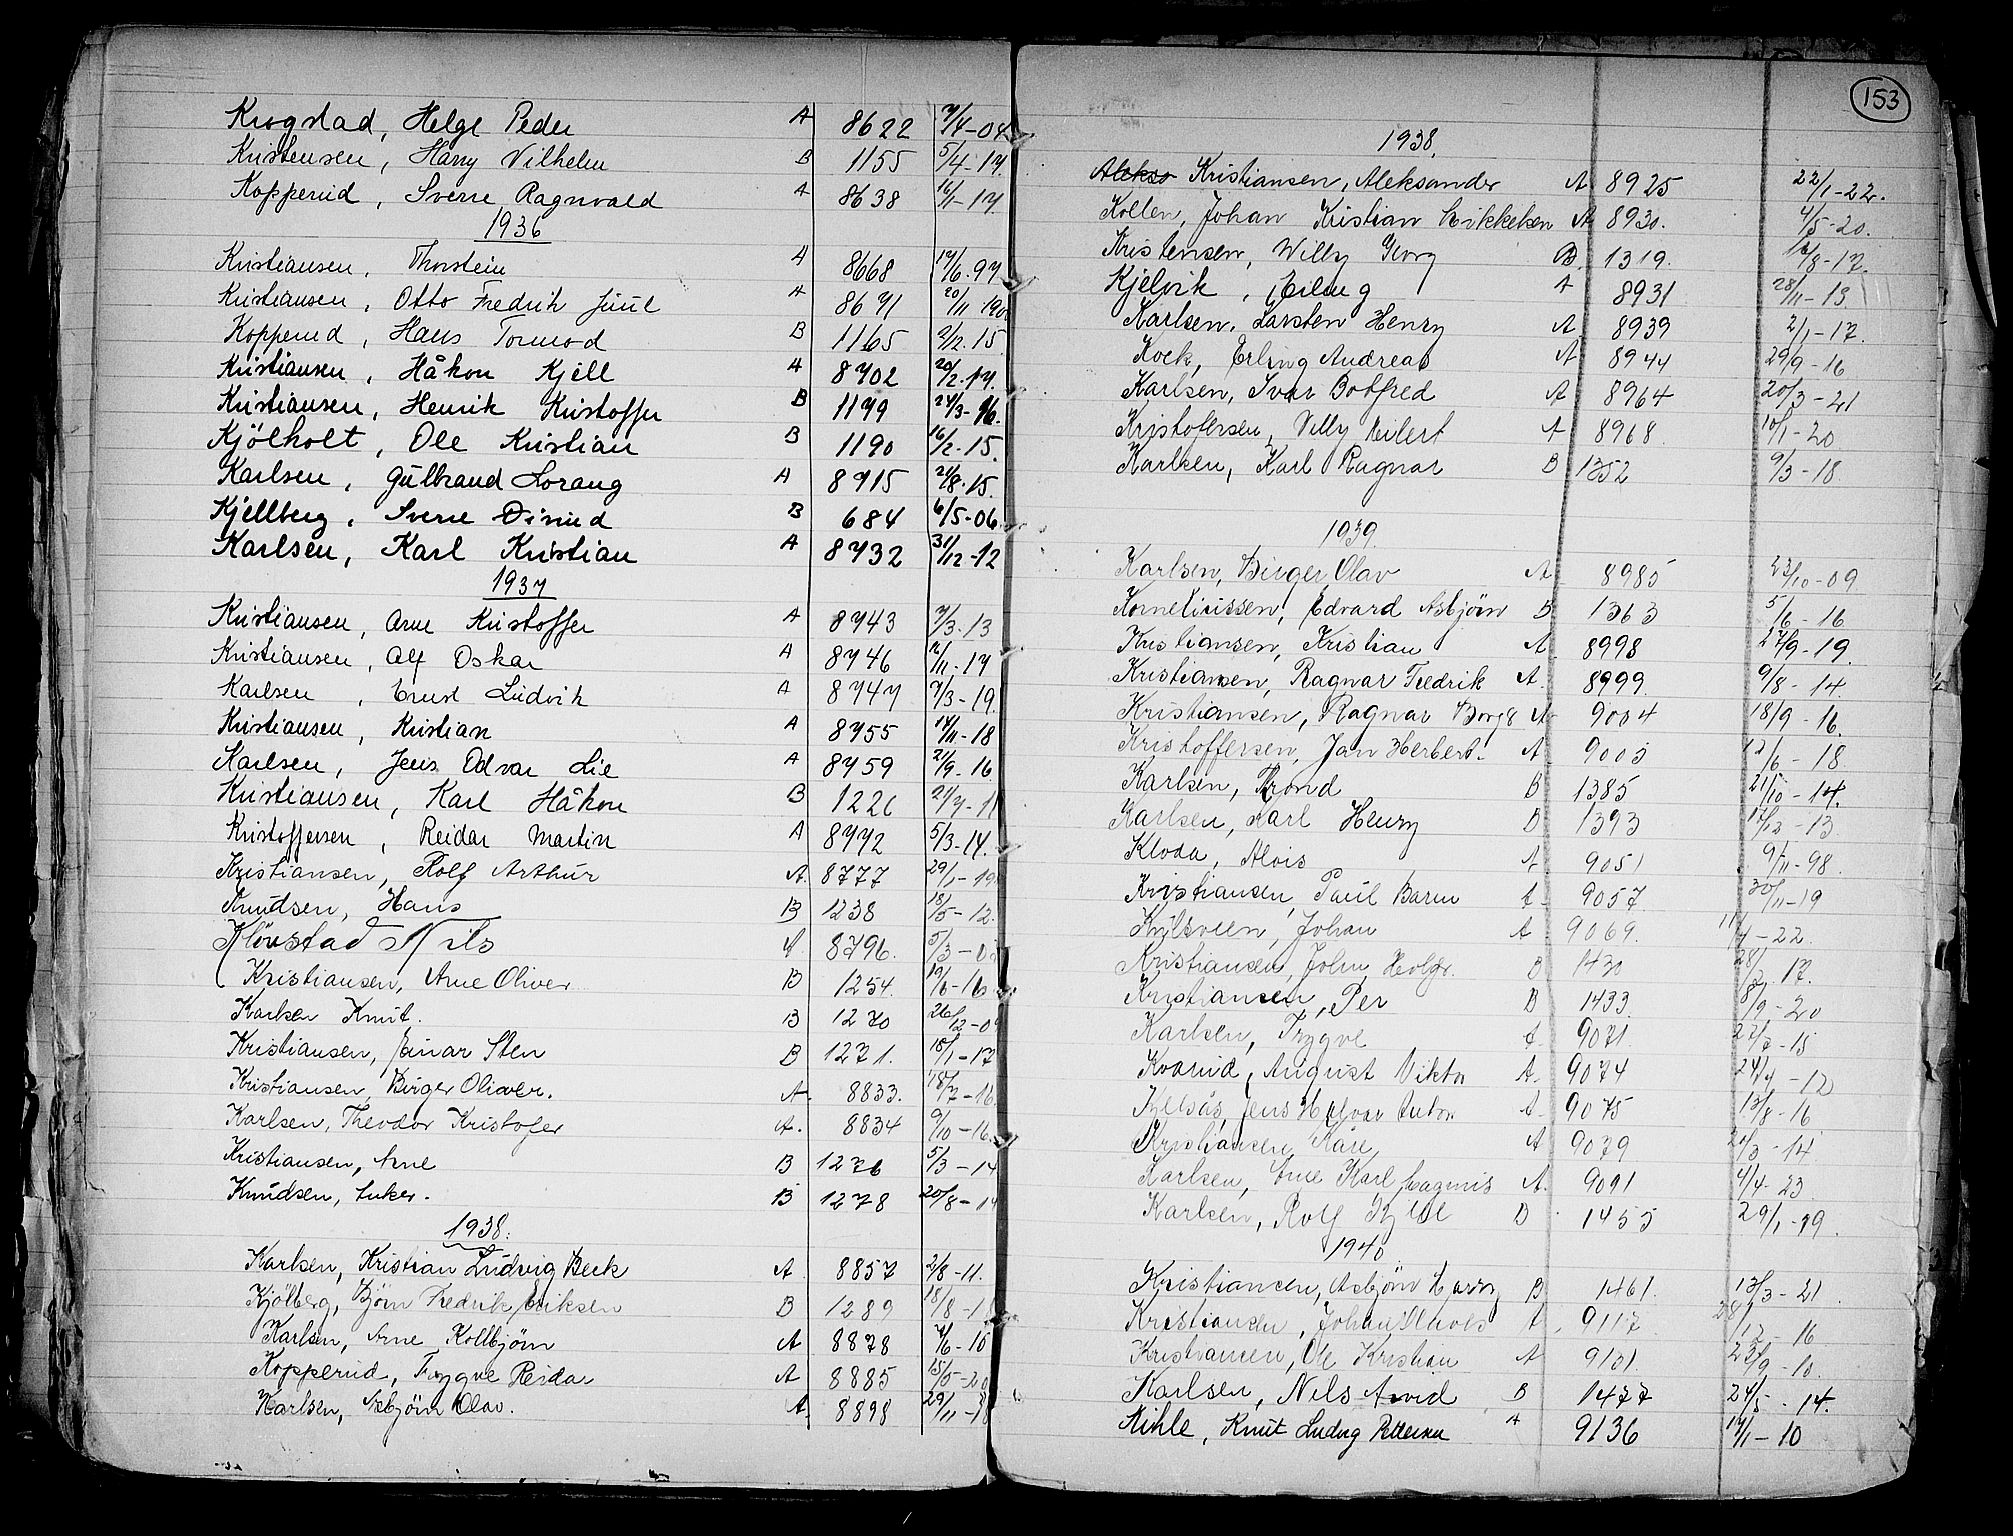 Krogstad, Helge Peder A 8622 7/4-04
Kristensen, Harry Vilhelm B 1155 5/4-17.
Kopperud, Sverre Ragnvald A 8638 16/1-17
1936
Kristiansen, Thorstein A 8668 17/6.97
Kristiansen, Otto Fredrik Juul A 8671 20/11 190
Kopperud, Hans Tormod B 1165 2/2.15
Kristiansen, Håkon Kjell A 8702 20/2.17.
Kristiansen, Henrik Kristoffer B 1179 24/3-16.
Kjölholt, Ole Kristian B 1190 16/2.15.
Karlsen, Gulbrand Lorang A 8715 21/8.15.
Kjellberg, Sverre Öivind B 684 6/5-06
Karlsen, Karl Kristian A 8732 31/12-12
1937
Kristiansen, Arne Kristoffer A 8743 7/3.13
Kristiansen, Alf Oskar A 8746 /11-17
Karlsen, Ernst Ludvik A 8747 7/3-19.
Kristiansen, Kristian A 8755 14/11-18
Karlsen, Jens Odvar Lie A 8759 21/9.16
Kristiansen, Karl Håkon B 1226 21/7-11
Kristoffersen, Reidar Martin A 8772 5/3-14.
Kristiansen, Rolf Arthur A. 8777 29/1-19
Knudsen, Hans B 1238 18/5-12.
Klövstad Nils A. 8796. 5/3-0
Kristiansen, Arne Oliver B 1254. 19/6-16
Karlsen Knut. B 1270 26/12-09
Kristiansen, Einar Sten B 1271. 18/1-17
Kristiansen, Birger Oliwer. A. 8833. 18/7-16
Karlsen, Theodor Kristofer A. 8834 9/10-16.
Kristiansen, Arne B 1276 5/3-14
Knudsen, Inker. B 1278 20/8-14
1938.
Karlsen, Kristian Ludvig Beck A. 8857 2/8-11.
Kjölberg, Björn Fredrik Eriksen B 1289 18/8-1
Karlsen, Arne Kolbjörn A 8878 4/6-10
Kopperud, Trygve Reidar A 8885 15/5-20
Karlsen, Asbjörn Olav. A. 8898 29/11-18
153
1938.
Alekso Kristiansen, Aleksander A 8925 22/1-22.
Kollen, Johan Kristian Mikkelsen A 8930. 4/5-20.
Kristensen, Willy Georg B. 1319. 12/8-17.
Kjelvik, Erling A 8931 28/11-13
Karlsen, Karsten Henry A 8939 2/1-17.
Kock, Erling Andreas A 8944 29/9-16
Karlsen, Ivar Botfred A 8964 20/3-21
Kristofersen, Villy Eilert A 8968. 10/1-20
Karlsen, Karl Ragnar B 1352 9/3-18.
1939.
Karlsen, Birger Olav A. 8985 23/10-09
Korneliussen, Edvard Asbjörn B 1363 5/6-16
Kristiansen, Kristian A. 8998 27/9-19.
Kristiansen, Ragnar Fredrik A. 8999. 9/8-14.
Kristiansen, Ragnar Borge A. 9004 18/9-16.
Kristoffersen, Jan Herbert. A. 9005 12/6-18
Karlsen, Trond B 1385 21/10-14.
Karlsen, Karl Henry B 1393 17/12-13.
Kloda, Alois A. 9051 9/11-98.
Kristiansen, Paul Baren A. 9057 30/11-19
Kylsveen, Johan A. 9069. 11/4-22.
Kristiansen, John Holger. B 1430 28/2.17.
Kristiansen, Per B 1433. 8/9-20
Karlsen, Trygve A. 9071. 22/7-15
Kvarud, August Viktor A. 9074 24/4-12
Kjelsås, Jens Halvor Anton A. 9075 13/8-16
Kristiansen, Kåre, A 9079 21/3-14
Karlsen, Arne Karl Magnus A. 9091 4/4-23
Karlsen, Rolf Kjell B 1455 29/1-19.
1940.
Kristiansen, Asbjörn Harry B 1461. 13/3-21.
Kristiansen, Johan A. 9117 28/12-16
Kristiansen, Ole Kristian A 9131. 23/9-10.
Karlsen, Nils Arvid B 1477 24/5-14.
Kihle, Knut Ludvig Pettersen A 9136 17/1-10